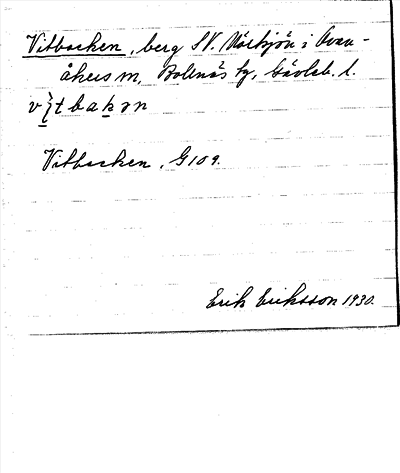 Vitbacken, berg SV. Mörtsjön i Ovan-
åkers sn, Bollnäs tg, Gävleb. l.
vi̲tbak̲ən
Vitbacken, G109.
Erik Eriksson 1930.